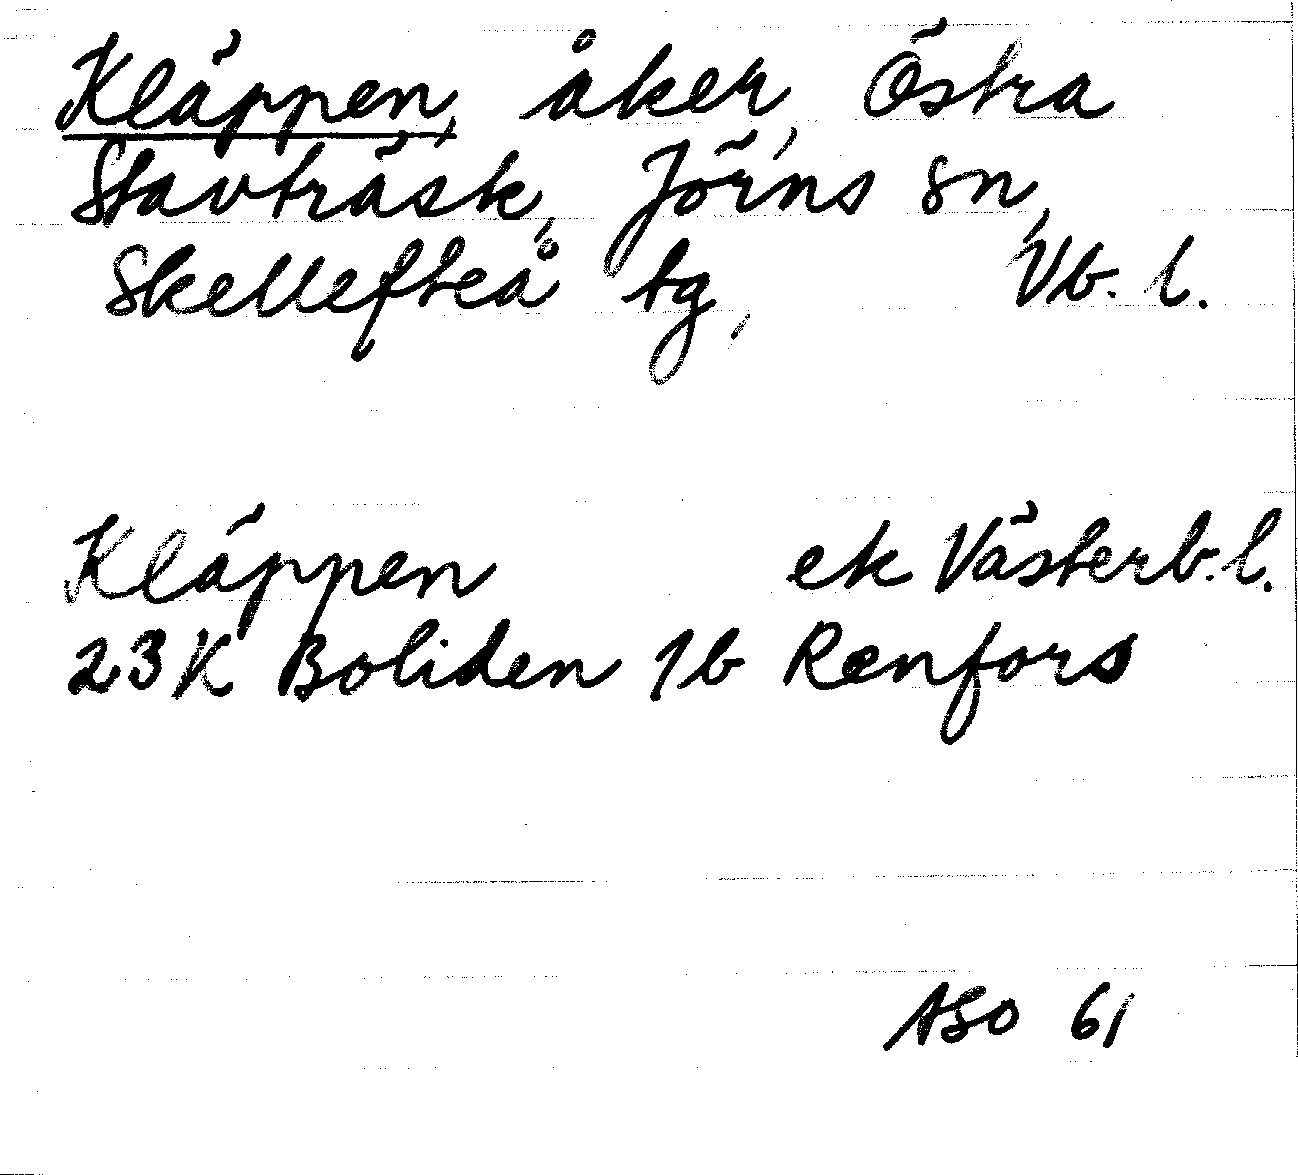 Kläppen, åker, Östra
Stavträsk, Jörns sn,
Skellefteå tg, Vb. l.
Kläppen ek Västerb. l.
23K Boliden 1b Renfors
ASO 61